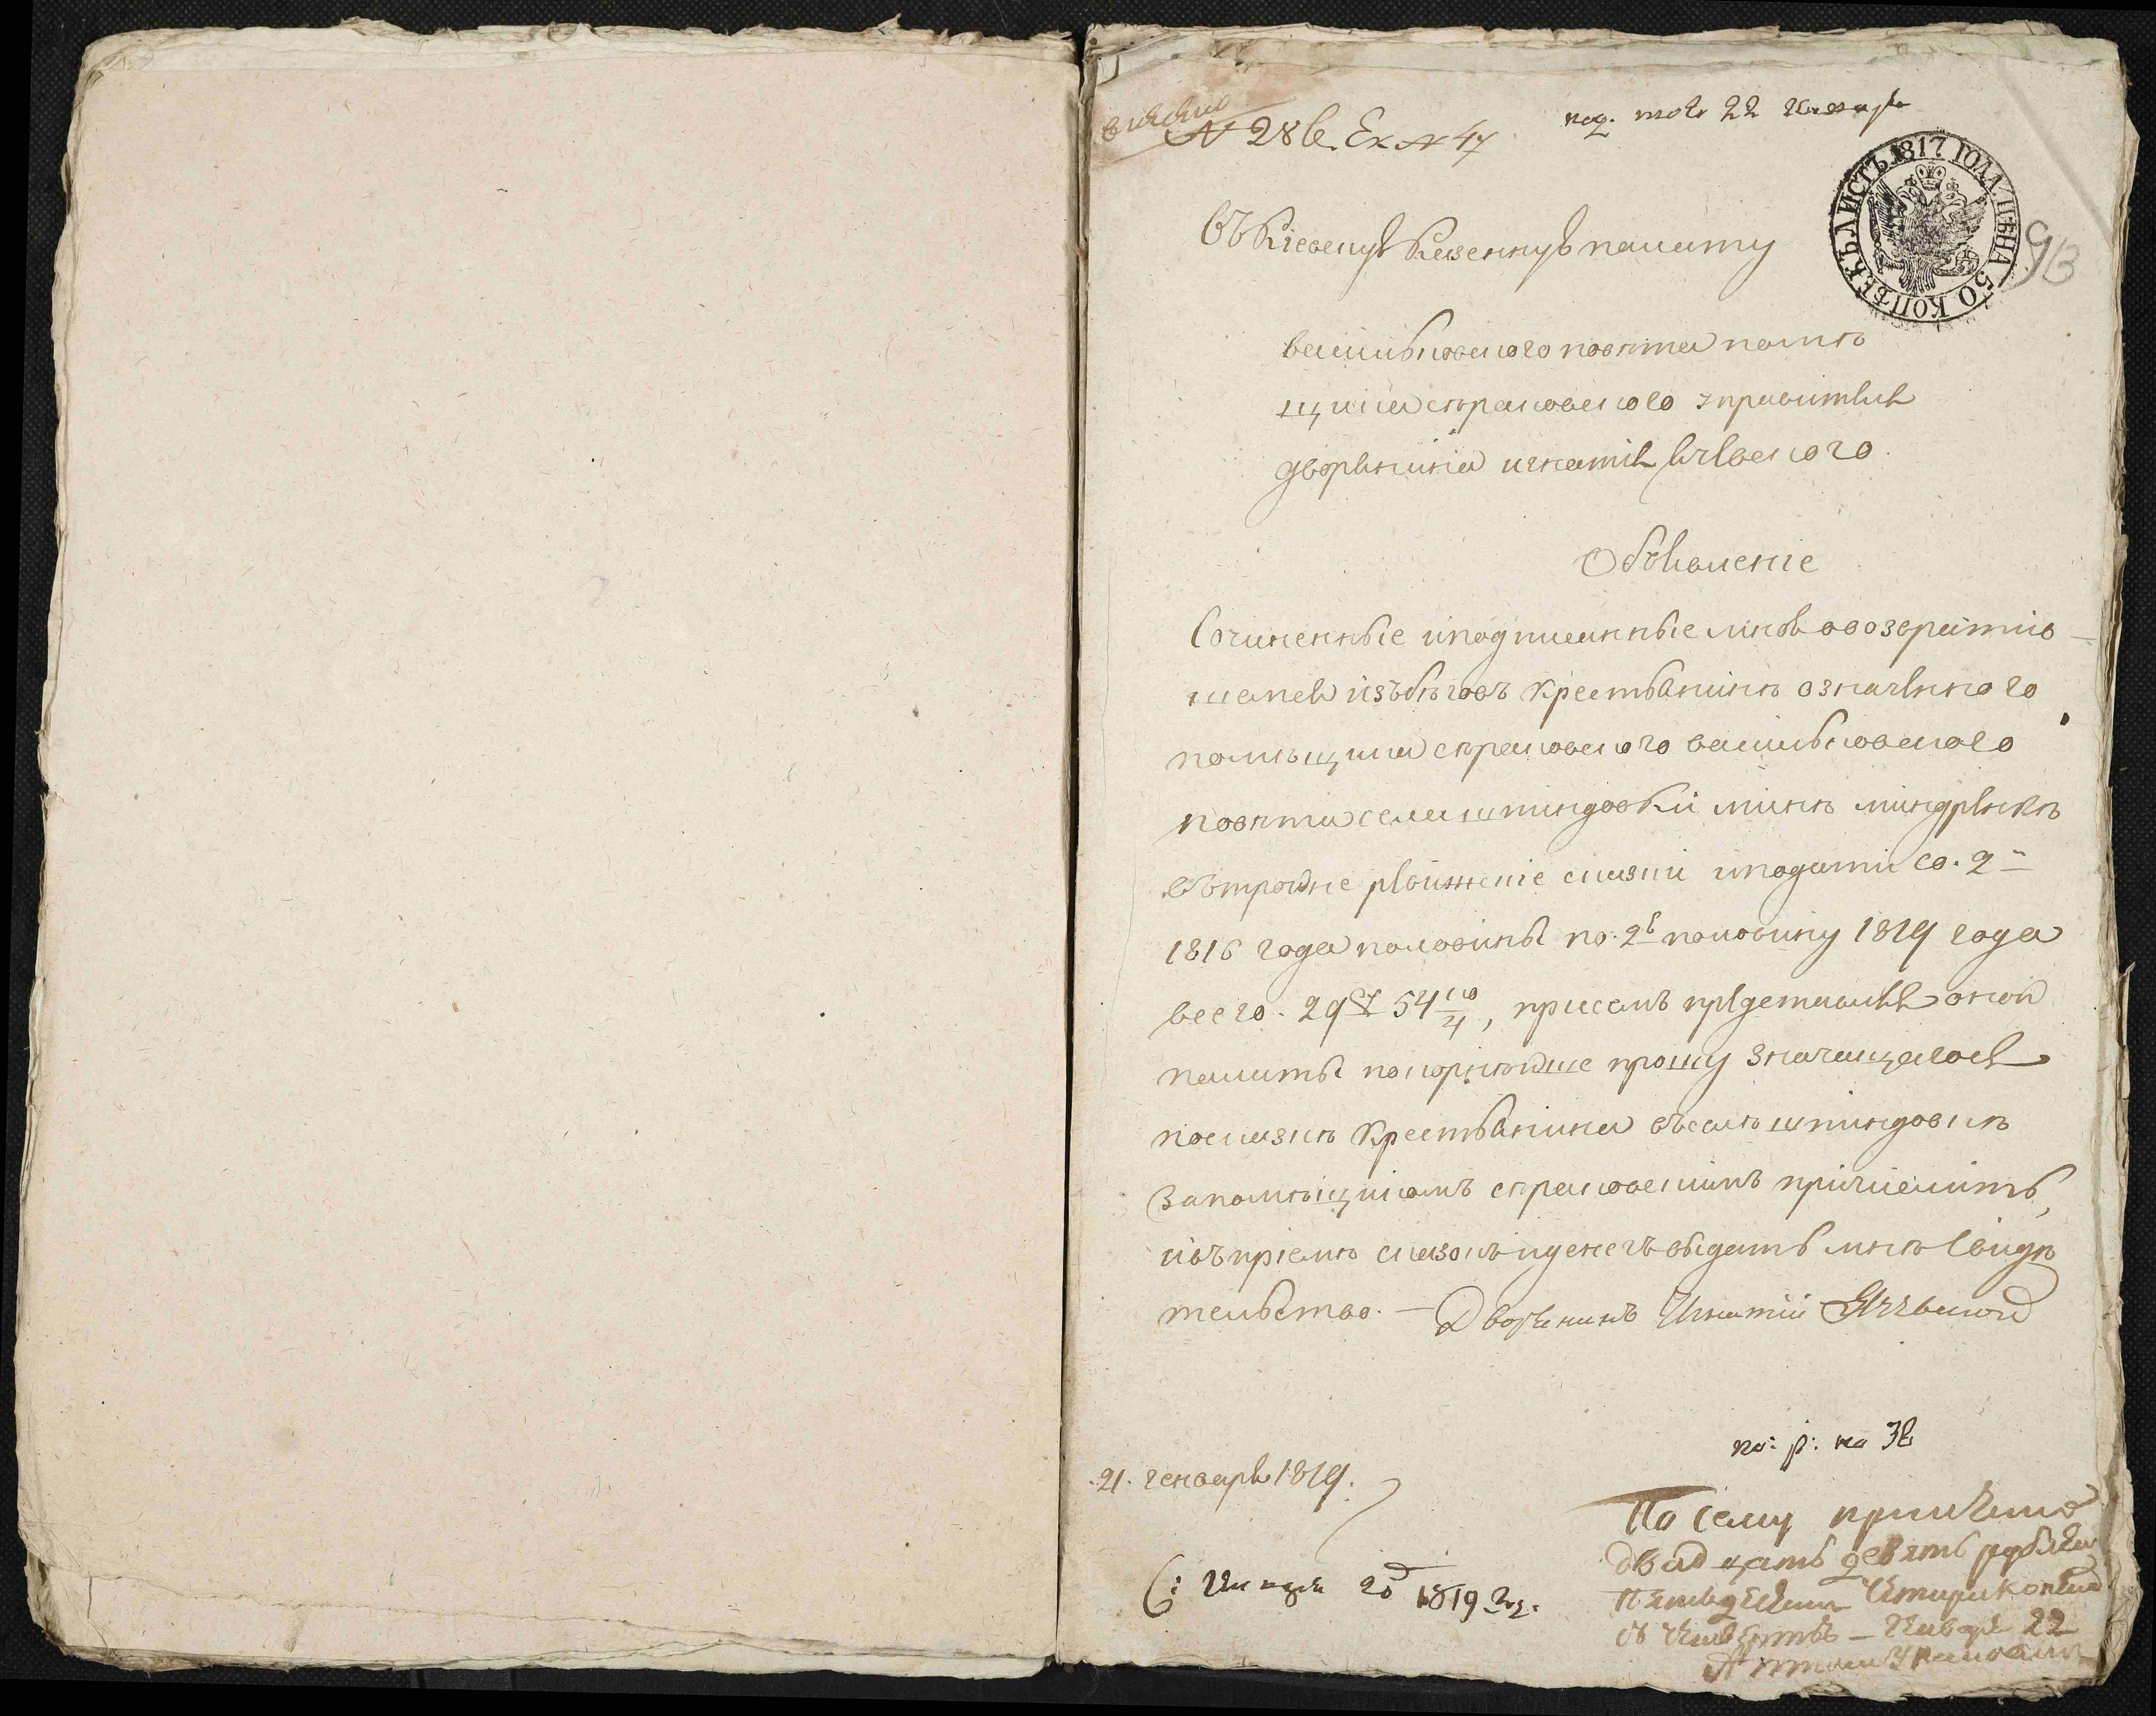 № 28
№ 47
22 Января
ЛИСТЪ 1817 ГОДА ЦѢНА 50 КОПѢЕКЪ
93
Въ Кіевскую Казенную палату
васильковского повѣта помѣ
щика скраковского управителя
дворянина игнатія
Объявленіе
Сочиненные и подписанные мною о возвратив
шемся изъ бѣговъ крестьянинѣ означенного
помѣщика скраковского васильковского
повѣта села шпиндовки
втройне ревижскіе сказки и податми со. 2й
1816 года половины по. 2ю половину 1819 года
всего. 29 54 4, при семъ представляя оной
палаты покорнѣйше прошу значащагося
по сказкѣ крестьянина въ селѣ шпиндовкѣ
за помѣщикомъ скраковскимъ причислить,
и въ пріемѣ сказокъ и денегъ выдать мнѣ свидѣ
тельство. — Дворянинъ Игнатій
по: р: на
21. генваря 1819.
По сему
двадцать девять рублей
пятьдесят четыри копеик
съ четвертью — Января 22
Января 20 1819